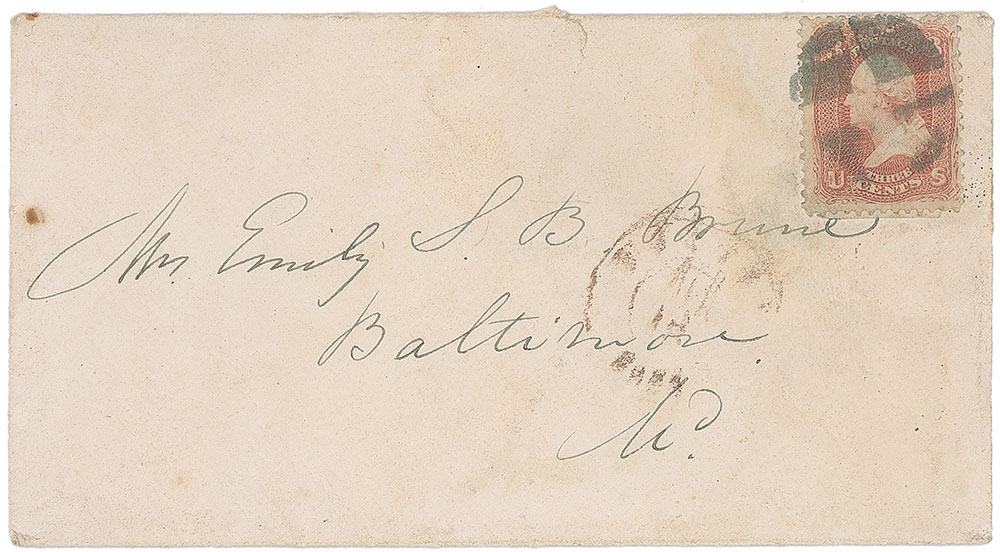 U S POSTAGE
U THREE CENTS S
Mrs Emily S. B. Brune
Baltimore.
Md.